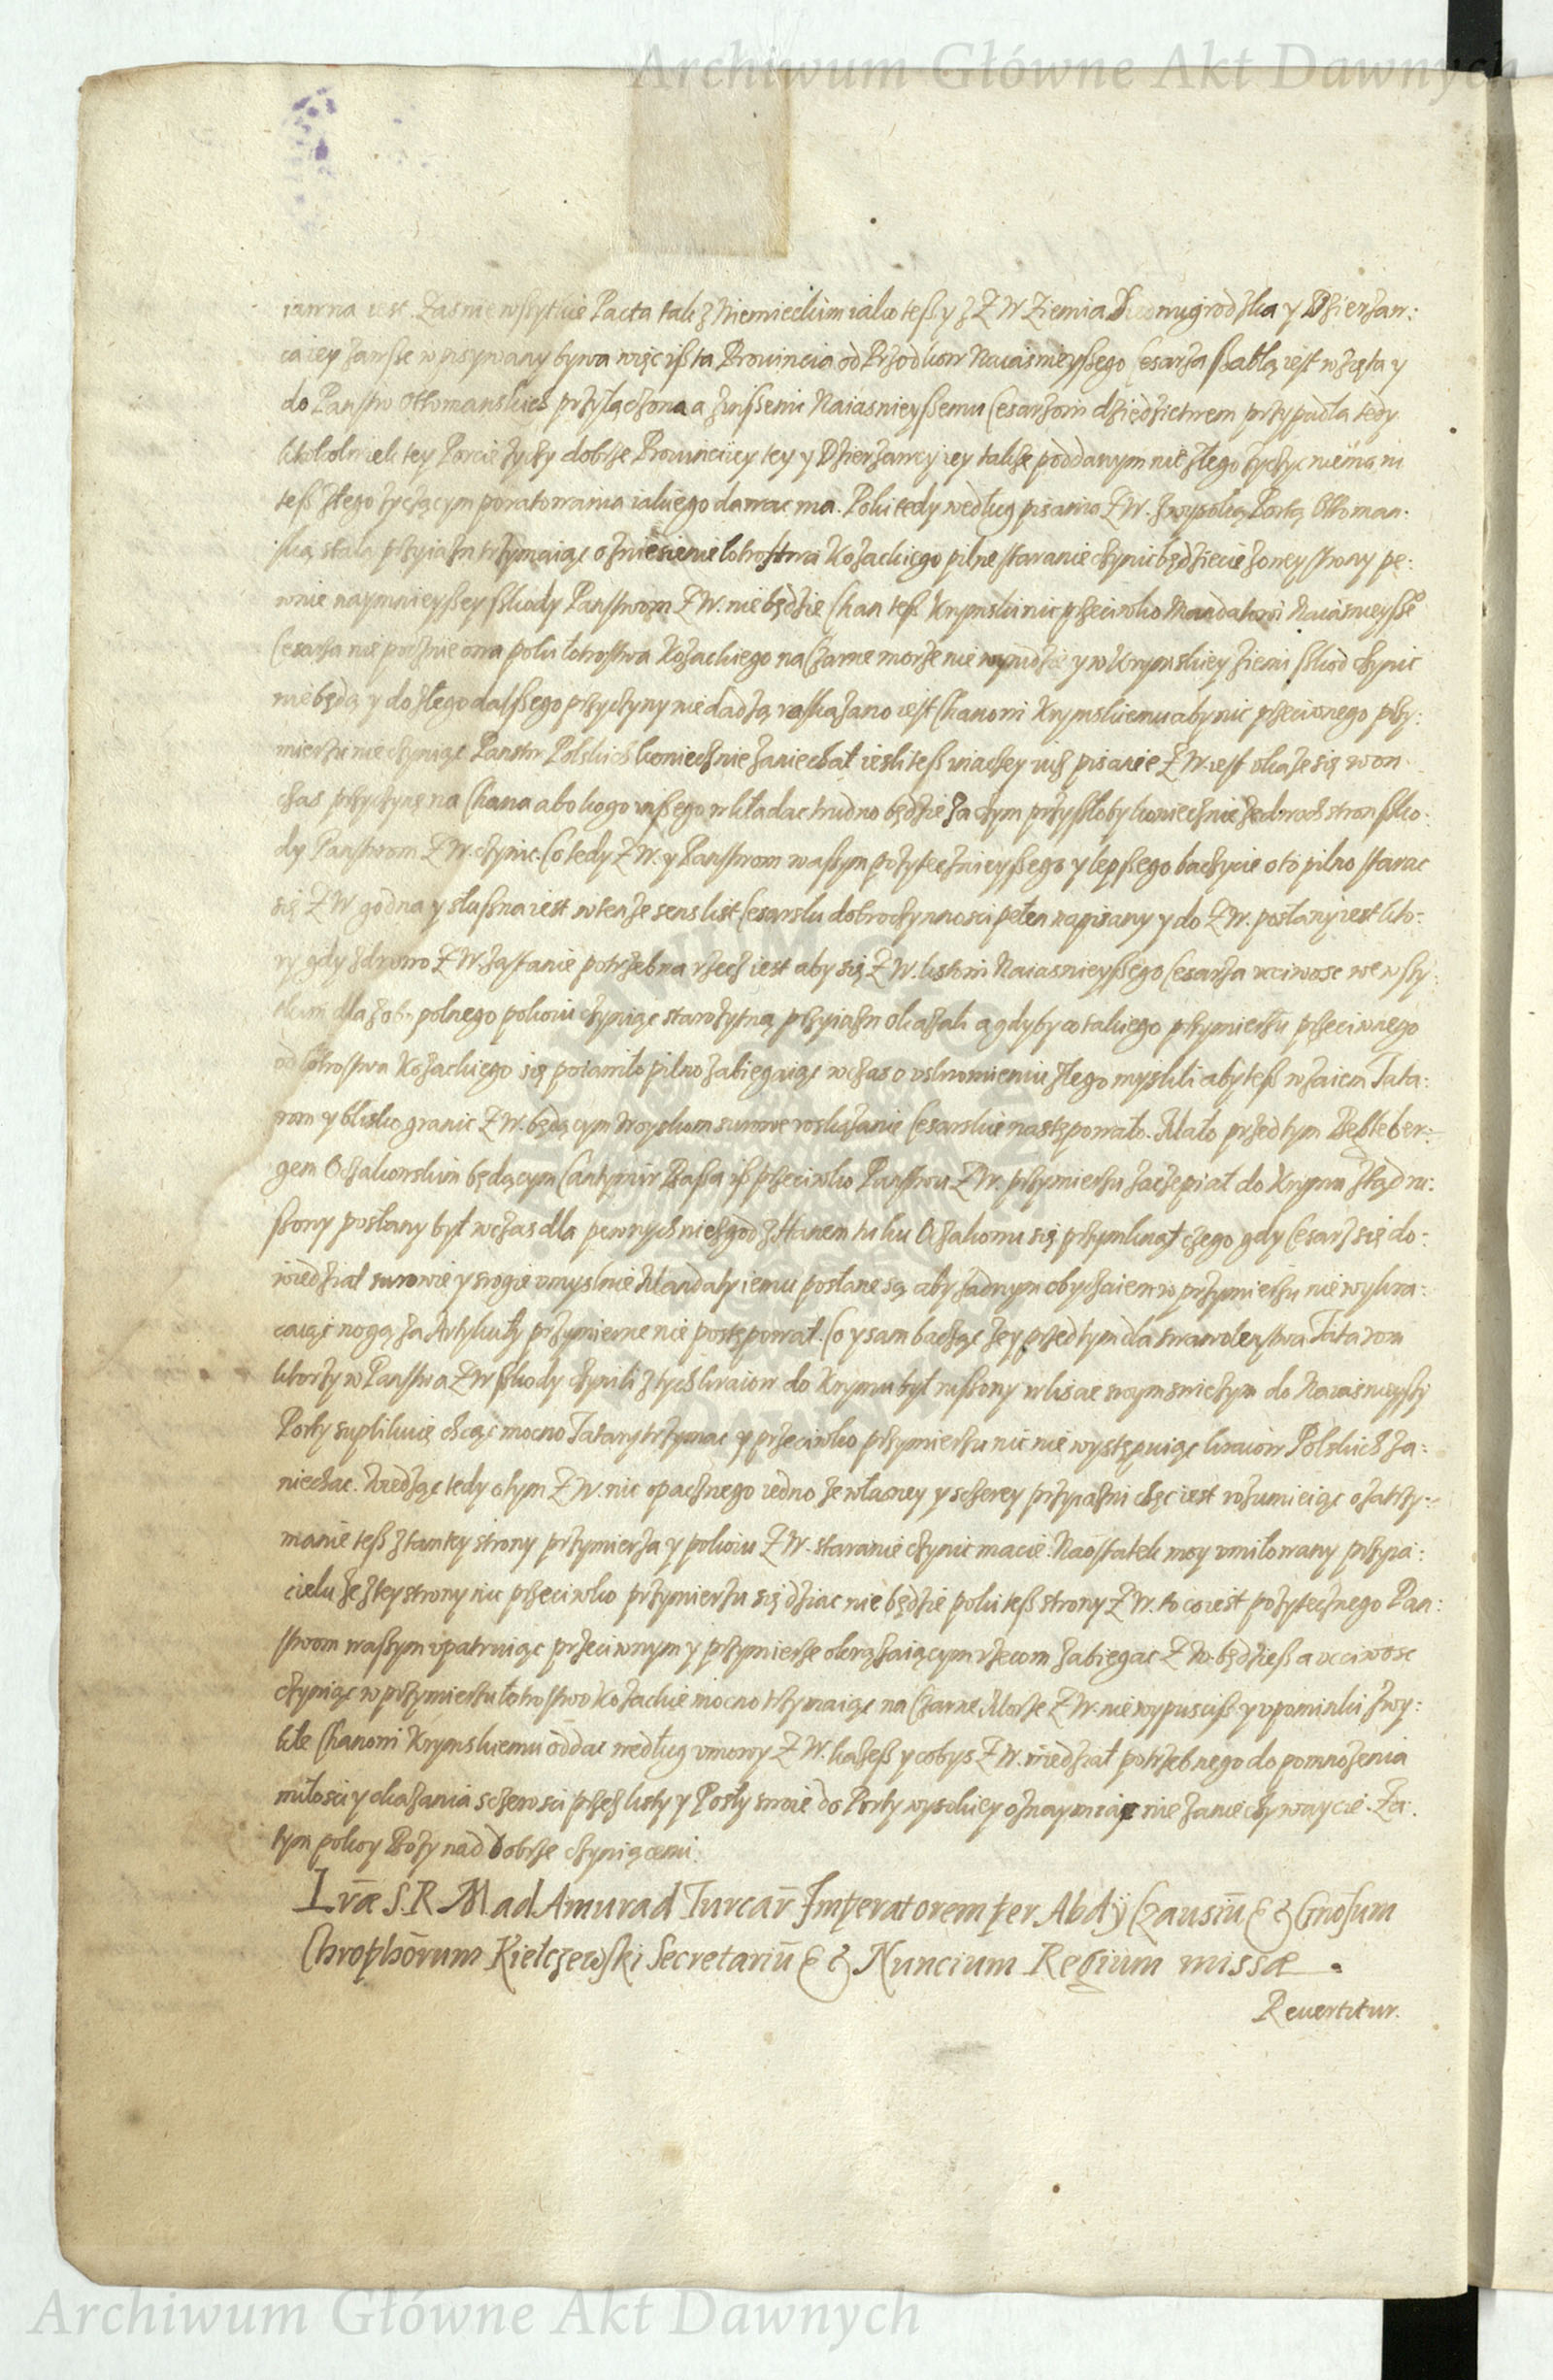 Archiwum Główne Akt Dawnych
iawna iest. Zasnie wszytkie Pacta tak z Niemieckim iako tesz y z Z W Ziemia Siedmigrodzka y Dzierzaw:
ca iey zawsze wpisywany bywa więc isz ta Prowincia od Przodkow Naiasnieyszego Cesarza szablą iest wzięta y
do Panstw Ottomanskich przyłączona a zwissemi Naiasnieyszemu Cesarzowi dziedzictwem przypadła tedy
ktokolwiek tey Porcie życzy dobrze Prowinciiey tey y Dzierzawcy iey takze poddanym nic złego życzyc niema ni
tesz złego życzącym poratowania iakiego dawac ma. Poki tedy według pisania Z W. z wysoką Portą Ottoman:
ską stała przyiazn trzymaiąc o zniesienie łotrostwa Kozackiego pilne staranie czynic będziecie z oney strony pe:
wnie naymnieyszey szkody Panstwom Z W. nie będzie Chan tesz Krymski nic przeciwko Mandatowi Naiasnieysze°
Cesarza nie pocznie ona poki łotrostwa Kozackiego na Czarne morze nie wynidzie y w Krymskiey ziemi szkod czynic
nie będą y do złego dalszego przyczyny nie dadzą raskazano iest Chanowi Krymskiemu aby nic przeciwnego przy:
mierzu nie czyniąc Panstw Polskich koniecznie zaniechał iesli tesz inaczey nisz pisanie Z W. iest okaze się won
czas przyczynę na Chana abo kogo inszego wkładac trudno będzie zaczym przyszłoby koniecznie zedwoch stron szko:
dy Panstwom Z W. czynic. Co tedy Z W. y Panstwom waszym pożytecznieyszego y lepszego baczycie o to pilno starac
się Z W godna y słuszna iest wtenze sens list Cesarski dobroczynnosci pełen napisany y do Z W. posłany iest kto:
ry gdy zdrowo Z W zastanie potrzebna rzecz iest aby się Z W. listowi Naiasnieyszego Cesarza ucciwosc we wszy:
tkim dla zobopolnego pokoiu czyniąc starożytną przyiazn okazali a gdyby co takiego przymierzu przeciwnego
od łotrostwa Kozackiego się poiawiło pilno zabiegaiąc wczas o uskromieniu złego myslili aby tesz wzaiem Tata:
rom y blisko granic Z W. będącym Woyskom surowe roskazanie Cesarskie następowało. Mało przed tym Beglerber:
gem Oczakowskim będącym Cantymir Basza isz przeciwko Panstwu Z W. przymierzu zaczepiał do Krymu ztąd ru:
szony posłany był wczas dla pewnych niezgod z Hanem tu ku Oczakowu się przymknął czego gdy Cesarz się do:
wiedział surowie y srogie umyslnie Mandaty iemu posłane są aby zadnym obyczaiem w przymierzu nie wykra:
caiąc nogą za Artykuły przymierne nie postępował. Co y sam bacząc ze y przed tym dla swawolenstwa Tatarow
ktorzy w Panstwa Z W szkody czynili z tych kraiow do Krymu był ruszony wlisac swym sniczym do Naiasnieyszey
Porty suplikuie chcąc mocno Tatary trzymac y przeciwko przymierzu nic nie występuiąc kraiow Polskich za:
niechac. Wiedząc tedy o tym Z W. nic opacznego iedno ze własney y sczerey przyiazni chęc iest rozumieiąc o zatrzy:
manie tesz z tamtey strony przymierza y pokoiu Z W. staranie czynic macie. Na ostatek moy umiłowany przyia:
cielu ze z tey strony nic przeciwko przymierzu się dziac nie będzie poki tesz strony Z W. to co iest pożytecznego Pan:
stwom waszym upatruiąc przeciwnym y przymierze obrażaiącym rzecom zabiegac Z W. będziesz a ucciwosc
czyniąc w przymierzu łotrostwo Kozackie mocno trzymaiąc na Czarne Morze Z W. nie wypuscisz y upominki zwy:
kłe Chanowi Krymskiemu oddac według umowy Z W. kazesz y cobys Z W. wiedział potrzebnego do pomnożenia
miłosci y okazania sczerosci przez listy y Posły swoie do Porty wysokiey oznaymiaiąc nie zaniechywaycie. Za:
tym pokoy Boży nad dobrze czyniącemi.
Lr̄ae S. R. M ad Amurad Turcar̄ Imperatorem per Abdÿ Czausiū &c Gnosum
Chrophōrum Kiełczewski Secretariū &c Nuncium Regium missae.
Revertitur.
Archiwum Główne Akt Dawnych